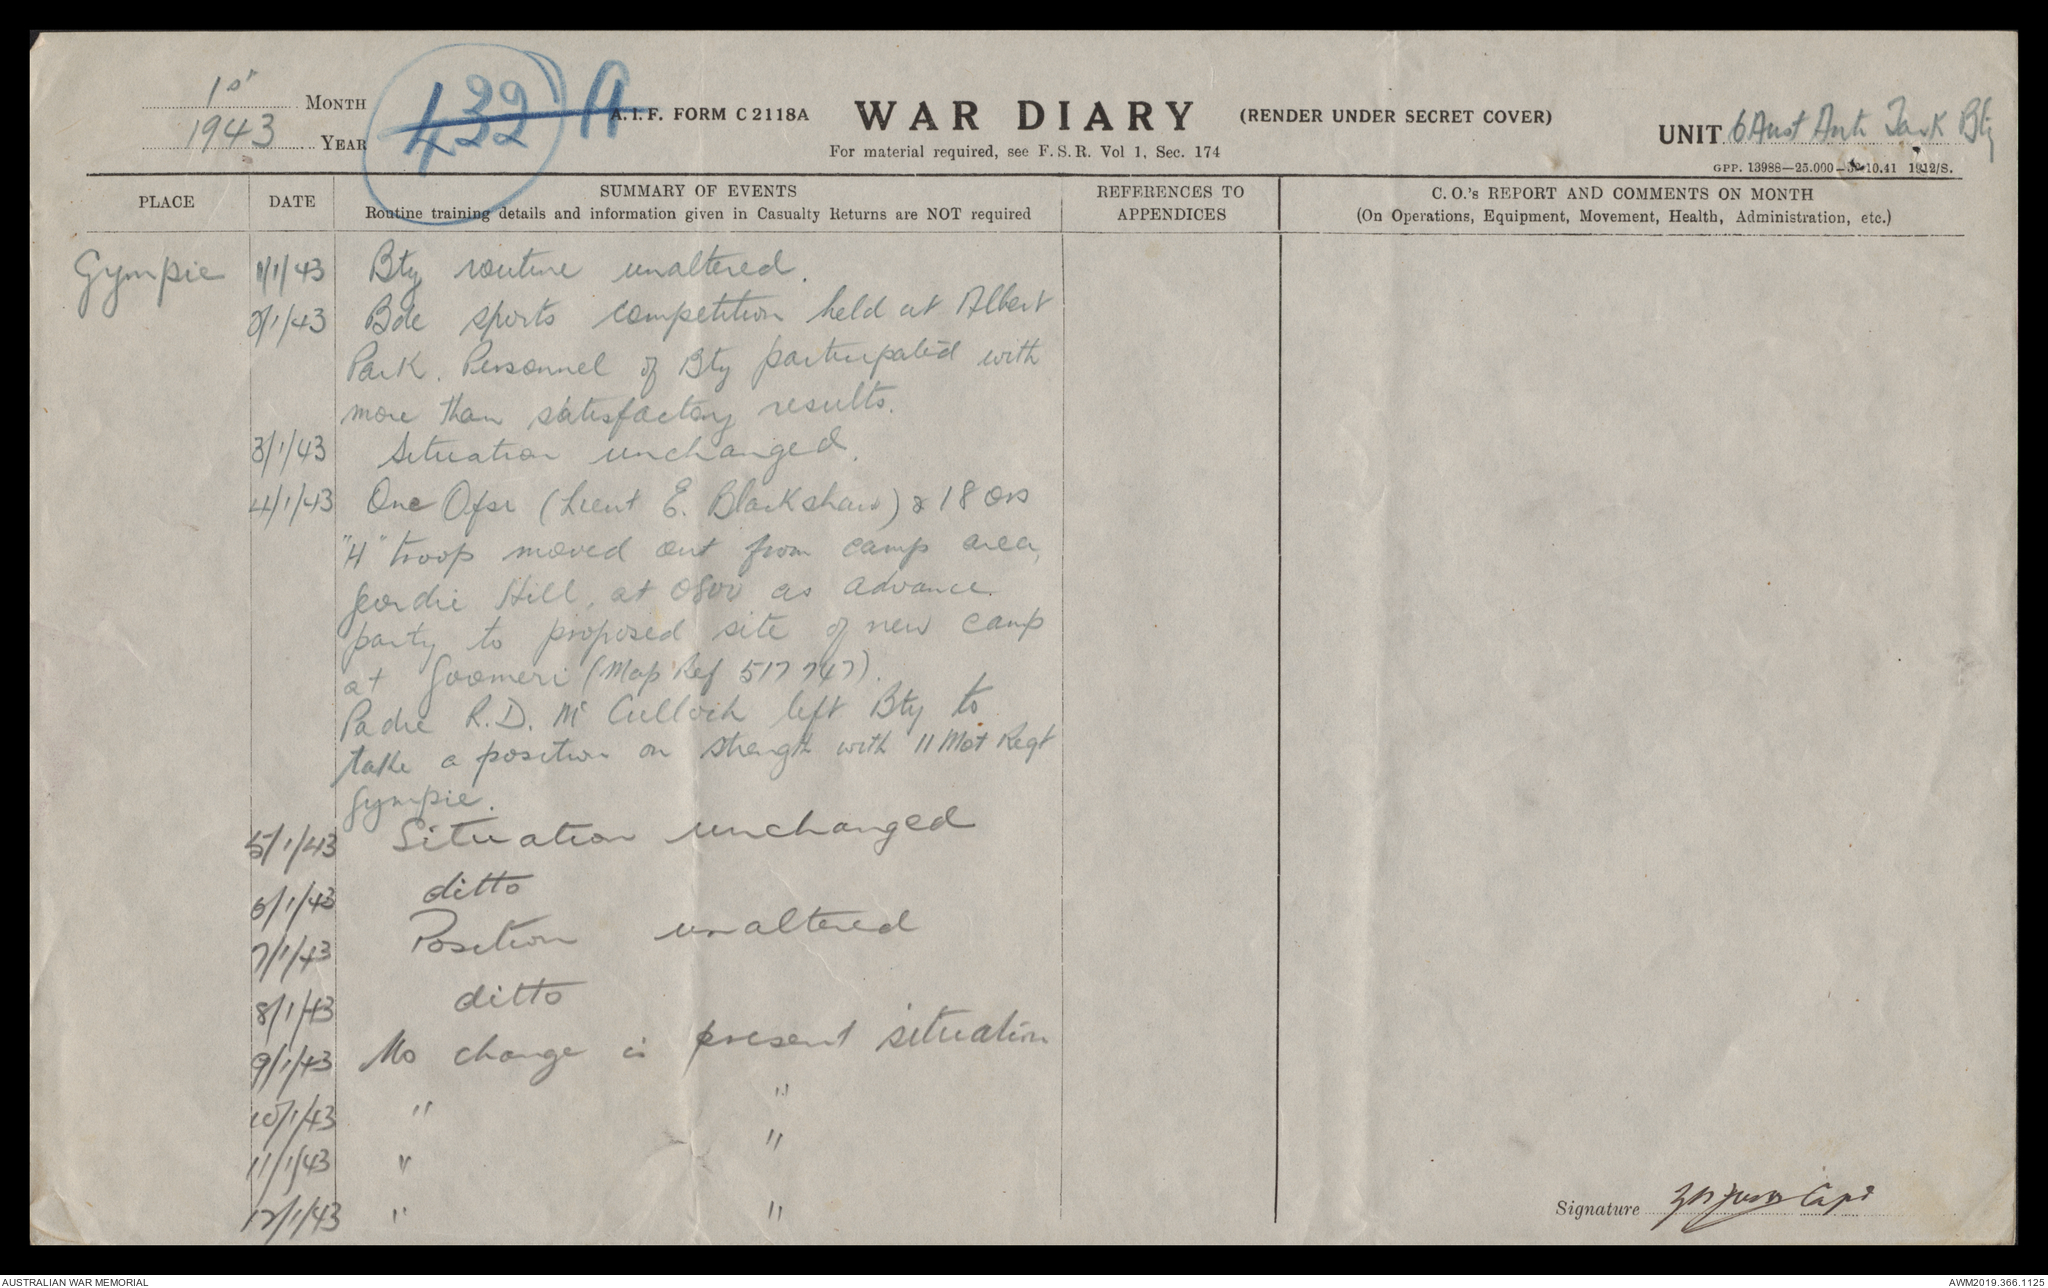 1st MONTH
1943 YEAR
432 A
A.I.F. FORM C 2118A
WAR DIARY
(RENDER UNDER SECRET COVER)
For material required, see F.S.R. Vol 1, Sec. 174
UNIT 6 Aust Ant Tank Bty
GPP. 13988—25.000— 10.41 1912/S.
PLACE
DATE
SUMMARY OF EVENTS
Routine training details and information given in Casualty Returns are NOT required
REFERENCES TO
APPENDICES
C.O.'s REPORT AND COMMENTS ON MONTH
(On Operations, Equipment, Movement, Health, Administration, etc.)
Gympie 1/1/43 Bty routine unaltered.
2/1/43 Bde sports competition held at Albert
Park. Personnel of Bty participated with
more than satisfactory results.
3/1/43 Situation unchanged.
4/1/43 One Ofsr (Lieut E. Blackshaw) & 18 ors
"H" troop moved out from camp area,
Geordie Hill, at 0800 as advance
party to proposed site of new camp
at Goomeri (Map Ref 517747).
Padre R.D. McCulloch left Bty to
take a position on strength with 11 Mot Regt
Gympie.
5/1/43 Situation unchanged
6/1/43 ditto
7/1/43 Position unaltered
8/1/43 ditto
9/1/43 No change in present situation
10/1/43 " "
11/1/43 " "
12/1/43 " "
Signature Capt
AUSTRALIAN WAR MEMORIAL
AWM2019.366.1125